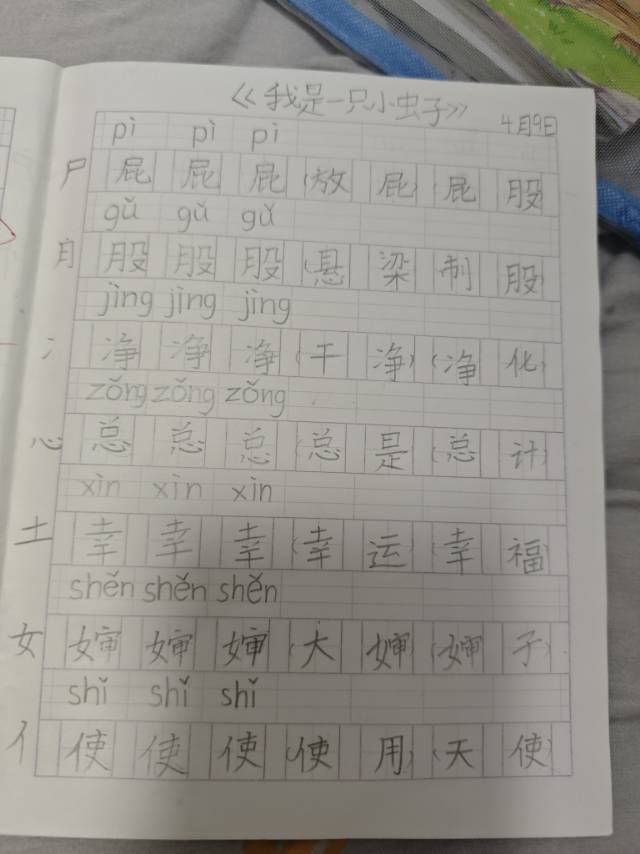 《我是一只小虫子》
4月9日
pì pì pì
尸 屁 屁 屁（放 屁）（屁 股
gǔ gǔ gǔ
月 股 股 股（悬 梁 刺 股）
jìng jìng jìng
冫 净 净 净（干 净）（净 化）
zǒng zǒng zǒng
心 总 总 总（总 是（总 计）
xìn xìn xìn
土 幸 幸 幸（幸 运（幸 福）
shěn shěn shěn
女 婶 婶 婶（大 婶）（婶 子）
shǐ shǐ shǐ
亻 使 使 使（使 用）（天 使）